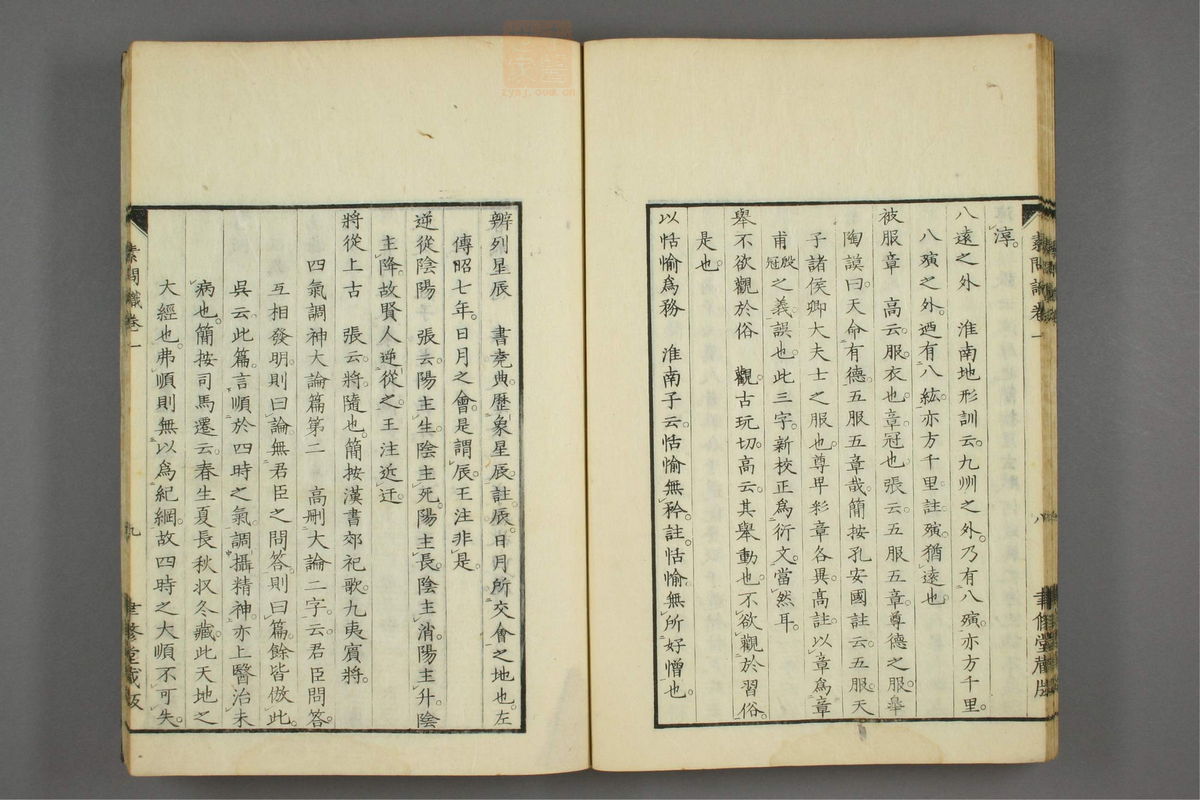 淳。
八遠之外　淮南地形訓云。九州之外。乃有八殥。亦方千里。
八殥之外。迺有八紘。亦方千里。註。殥。猶遠也
被服章　高云。服。衣也。章。冠也。張云。五服五章。尊德之服。皐
陶謨曰。天命有德。五服五章哉。簡按孔安國註云。五服。天
子諸侯卿大夫士之服也。尊卑彩章各異。高註。以章爲章
甫殷冠之義。誤也。此三字。新校正爲衍文。當然耳。
舉不欲觀於俗　觀。古玩切。高云。其舉動也。不欲觀於習俗。
是也。
以恬愉爲務　淮南子云。恬愉無矜。註。恬愉。無所好憎也。
素問識卷一
八
聿修堂藏版
辨列星辰　書堯典。歷象星辰。註。辰。日月所交會之地也。左
傳昭七年。日月之會。是謂辰。王注非是。
逆從陰陽　張云。陽主生。陰主死。陽主長。陰主消。陽主升。陰
主降。故賢人逆從之。王注近迂。
將從上古　張云。將。隨也。簡按漢書郊祀歌。九夷賓將。
四氣調神大論篇第二　高刪大論二字。云。君臣問答。
互相發明。則曰論。無君臣之問答。則曰篇。餘皆倣此。
吳云。此篇。言順於四時之氣。調攝精神。亦上醫治未
病也。簡按司馬遷云。春生夏長秋收冬藏。此天地之
大經也。弗順則無以爲紀綱。故四時之大順。不可失。
素問識卷一
九
聿修堂藏版
zysj.com.cn